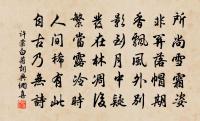 所尚雪霜姿
非關落帽期
香飄風外別
影到月中疑
發在林凋後
繁當露冷時
人間稀有此
自古乃無詩
許棠白菊